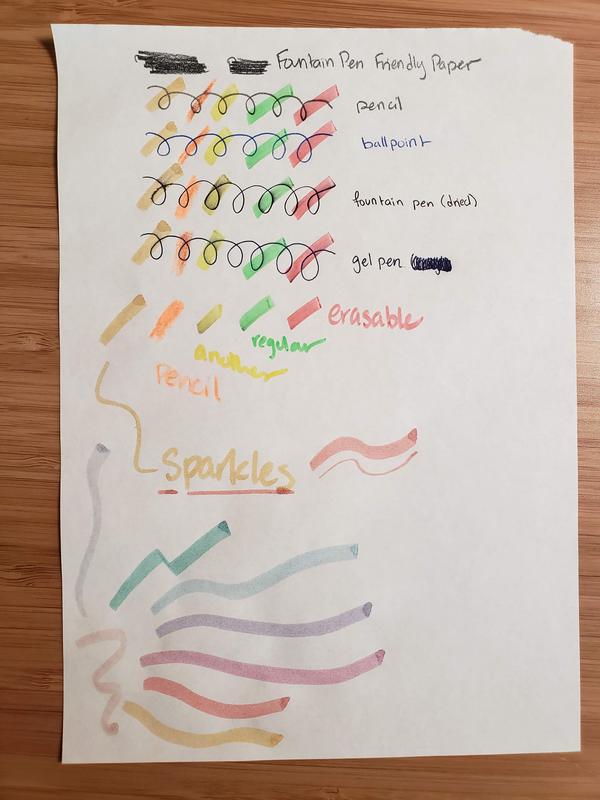 Fountain Pen Friendly Paper
pencil
ballpoint
fountain pen (dried)
gel pen
erasable
regular
another
Pencil
Sparkles